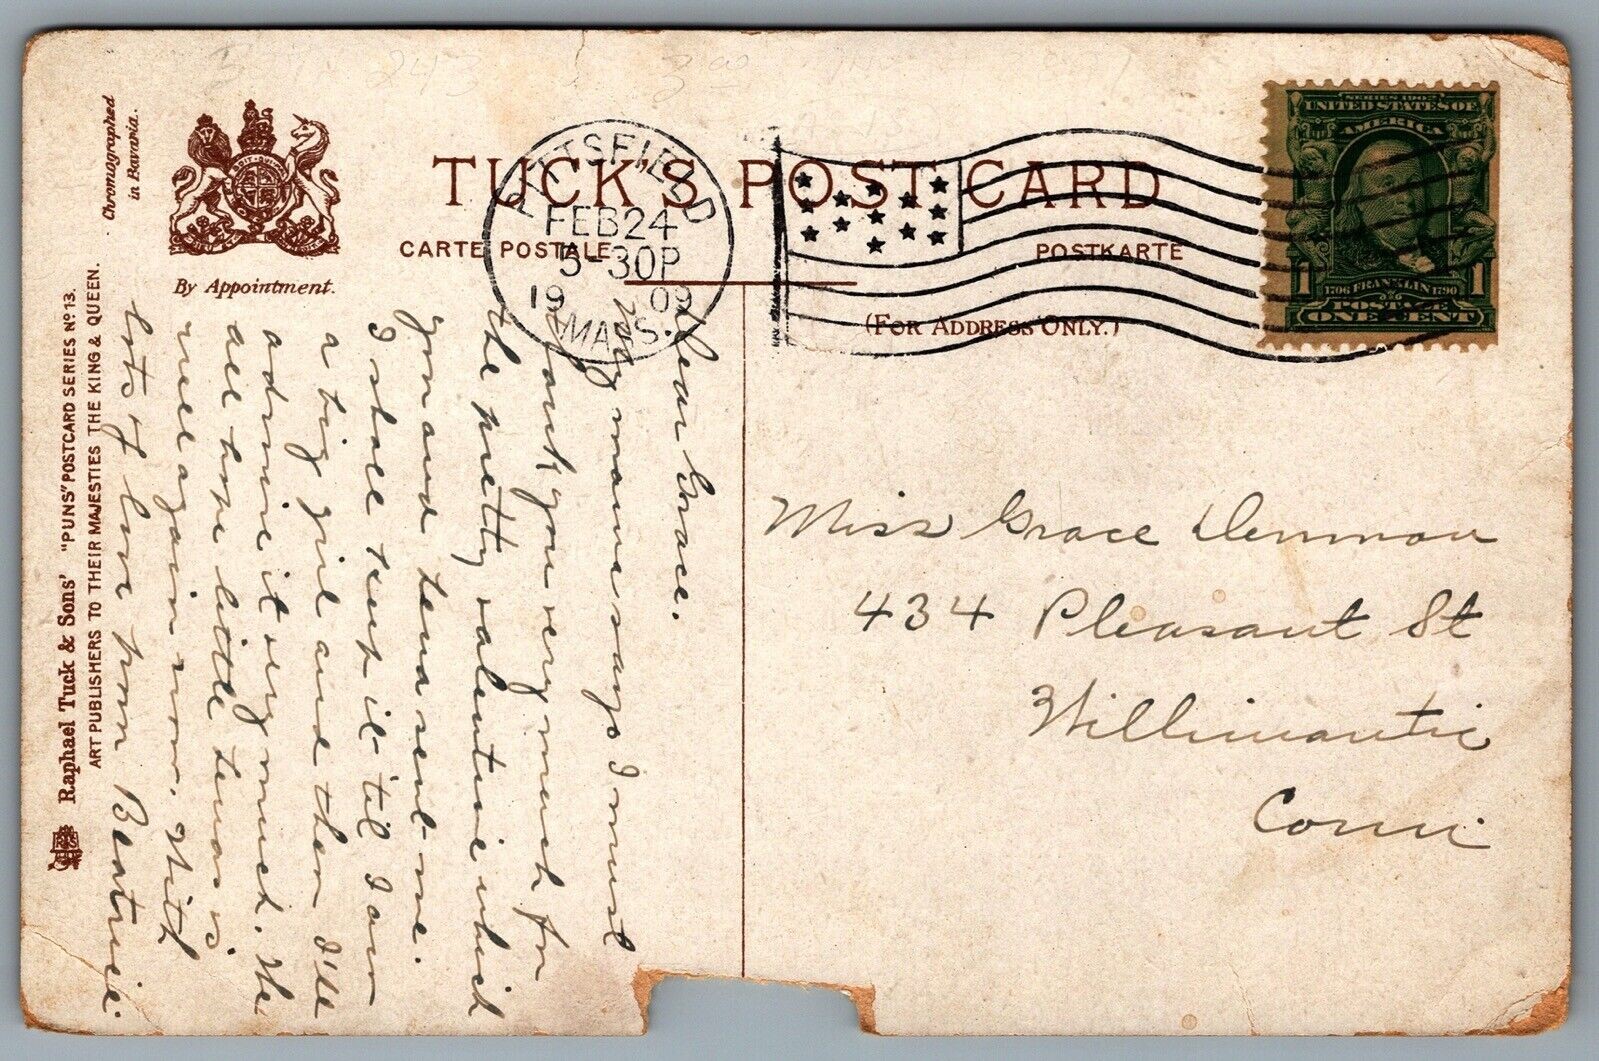 Chromographed
in Bavaria.
By Appointment.
TUCK'S POST CARD
CARTE POSTALE
POSTKARTE
(FOR ADDRESS ONLY.)
PITTSFIELD
FEB 24
5-30P
1909
MASS.
SERIES 1902
UNITED STATES OF
AMERICA
1 1706 FRANKLIN 1790 1
POSTAGE
ONE CENT
Raphael Tuck & Sons' "PUNS" POSTCARD SERIES Nº 13.
ART PUBLISHERS TO THEIR MAJESTIES THE KING & QUEEN.
Dear Grace.
My mama says I must
thank you very much for
the pretty valentine which
you and Lena sent me.
I shall keep it 'til I am
a big girl and then I'll
admire it very much. We
all hope little Lena is
well again now. With
lots of love from Beatrice.
Miss Grace Denman
434 Pleasant St
Willimantic
Conn.
243